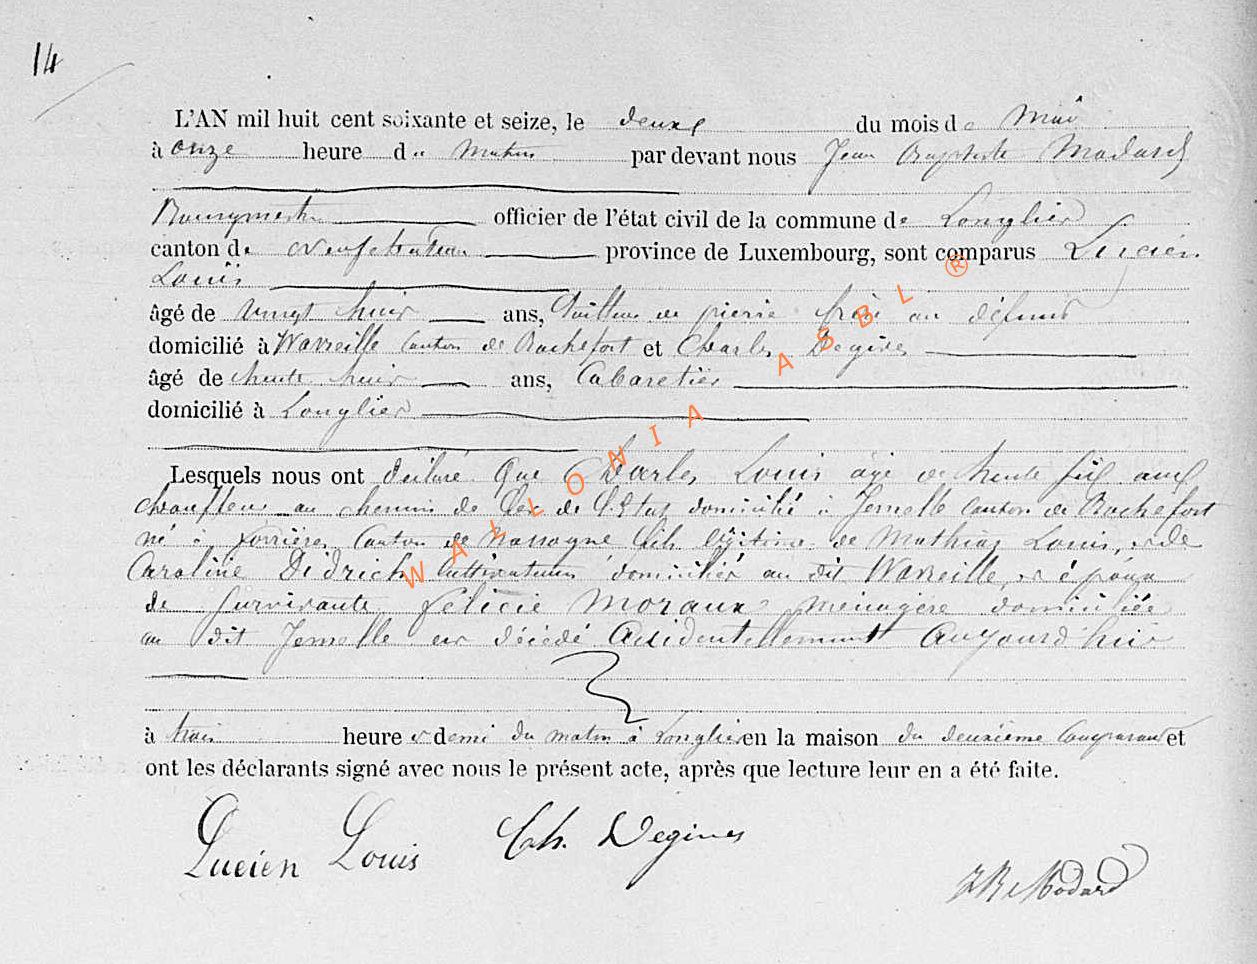 14
L'AN mil huit cent soixante et seize, le deux du mois de Mai
à onze heure du matin par devant nous Jean Baptiste Modard
Bourgmestre officier de l'état civil de la commune de Longlier
canton de Neufchateau province de Luxembourg, sont comparus Lucien
Louis
âgé de vingt huit ans, Tailleur de pierre frère au défunt
domicilié à Waveille Canton de Rochefort et Charles Degives
âgé de trente huit ans, Cabaretier
domicilié à Longlier
Lesquels nous ont déclaré Que Charles Louis âgé de trente six ans
chauffeur au chemin de fer de l'Etat domicilié à Jemelle Canton de Rochefort
né à Forrières Canton de Nassogne fils légitime de Mathias Louis, et de
Caroline Didrich Cultivateurs domiciliés au dit Waveille, et époux
de survivante Félicie Moraux ménagère domiciliée
au dit Jemelle est décédé Accidentellement Aujourd'hui
à trois heure et demi du matin à Longlier en la maison du deuxième Comparant et
ont les déclarants signé avec nous le présent acte, après que lecture leur en a été faite.
Lucien Louis Ch. Degives
JB Modard
WALLONIA ASBL ®